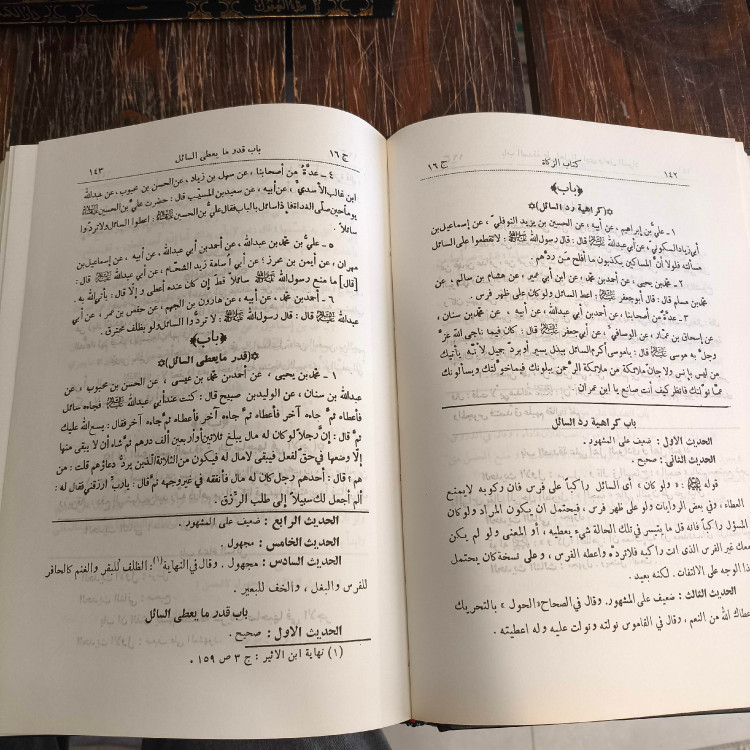 ١٤٢ كتاب الزكاة ج ١٦
﴿باب﴾
✩(كراهية رد السائل)✩
١ ـ عليُّ بن إبراهيم ، عن أبيه ، عن الحسين بن يزيد النوفليّ ، عن إسماعيل بن
أبي زياد السكوني ، عن أبي عبدالله ﷺ قال : قال رسول الله ﷺ : لا تقطعوا على السائل
مسألته فلولا أنَّ المساكين يكذبون ما أفلح من ردّهم .
٢ ـ محمّد بن يحيى ، عن أحمد بن محمّد ، عن ابن أبي عمير ، عن هشام بن سالم ، عن
محمّد بن مسلم قال : قال أبو جعفر : اعط السائل ولو كان على ظهر فرس .
٣ ـ عدَّة من أصحابنا ، عن أحمد بن أبي عبدالله ، عن أبيه ، عن محمّد بن سنان ،
عن إسحاق بن عمّار ، عن الوصافي ، عن أبي جعفر قال : كان فيما ناجى الله عزَّ
وجلَّ به موسى قال : يا موسى أكرم السائل ببذل يسير أو بردّ جميل لأنّه يأتيك
من ليس بإنس ولا جانّ ملائكة من ملائكة الرحمن يبلونك فيما خوّلتك ويسألونك
عمّا نوّلتك فانظر كيف أنت صانع يا ابن عمران .
باب كراهية رد السائل
الحديث الاول : ضعيف على المشهور .
الحديث الثاني : صحيح .
قوله : « ولو كان » أى السائل راكباً على فرس فان ركوبه لايمنع
العطاء ، وفي بعض الروايات ولو على ظهر فرس ، فيحتمل ان يكون المراد ولو كان
المسؤل راكباً فانه قد ما يتيسر في تلك الحالة شيء يعطيه ، أو المعنى ولو لم يكن
معك غير الفرس الذى انت راكبه فلا ترده واعطه الفرس ، وعلى نسخة كان يحتمل
هذا الوجه على الالتفات . لكنه بعيد .
الحديث الثالث : ضعيف على المشهور. وقال في الصحاح «الحول » بالتحريك
اعطاك الله من النعم ، وقال في القاموس نولته ونولت عليه وله اعطيته .
ج ١٦ باب قدر ما يعطى السائل ١٤٣
٤ ـ عدَّةٌ من أصحابنا ، عن سهل بن زياد ، عن الحسن بن محبوب ، عن عبدالله
ابن غالب الأسديِّ ، عن أبيه ، عن سعيد بن المسيّب قال : حضرت عليَّ بن الحسين
يوماً حين صلّى الغداة فإذا سائل بالباب فقال عليُّ بن الحسين : أعطوا السائل ولا تردّوا
سائلاً .
٥ ـ عليُّ بن محمّد بن عبدالله ، عن أحمد بن أبي عبدالله ، عن أبيه ، عن إسماعيل بن
مهران ، عن أيمن بن محرز ؛ عن أبي اُسامة زيد الشحّام ، عن أبي عبدالله قال :
[قال] ما منع رسول الله ﷺ سائلاً قطّ إن كان عنده أعطى وإلّا قال : يأتي الله به .
٦ ـ أحمد بن محمّد ، عن أبيه ، عن هارون بن الجهم ، عن حفص بن عمر ، عن أبي
عبدالله قال : قال رسول الله ﷺ : لا تردُّوا السائل ولو بظلف محترق .
﴿باب﴾
✩(قدر ما يعطى السائل)✩
١ ـ محمّد بن يحيى ، عن أحمد بن محمّد بن عيسى ، عن الحسن بن محبوب ، عن
عبدالله بن سنان ، عن الوليد بن صبيح قال : كنت عند أبي عبدالله فجاءه سائل
فأعطاه ثمَّ جاءه آخر فأعطاه ثمَّ جاءه آخر فأعطاه ثمَّ جاءه آخر فقال : يسع الله عليك
ثمَّ قال : إنَّ رجلاً لو كان له مال يبلغ ثلاثين أو أربعين ألف درهم ثمَّ شاء أن لا يبقى منها
إلّا وضعها في حقّ لفعل فيبقى لا مال له فيكون من الثلاثة الذين يردُّ دعاؤهم قلت : من
هم ؛ قال : أحدهم رجل كان له مال فأنفقه في غير وجهه ثمَّ قال : يا ربِّ ارزقني فقال له :
ألم أجعل لك سبيلاً إلى طلب الرِّزق .
الحديث الرابع : ضعيف على المشهور .
الحديث الخامس : مجهول .
الحديث السادس : مجهول . وقال في النهاية(١): الظلف للبقر والغنم كالحافر
للفرس والبغل ، والخف للبعير .
باب قدر ما يعطى السائل
الحديث الاول : صحيح .
(١) نهاية ابن الاثير : ج ٣ ص ١٥٩ .